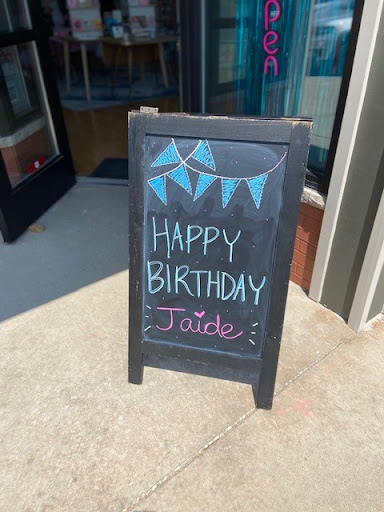 open
HAPPY
BIRTHDAY
Jaide